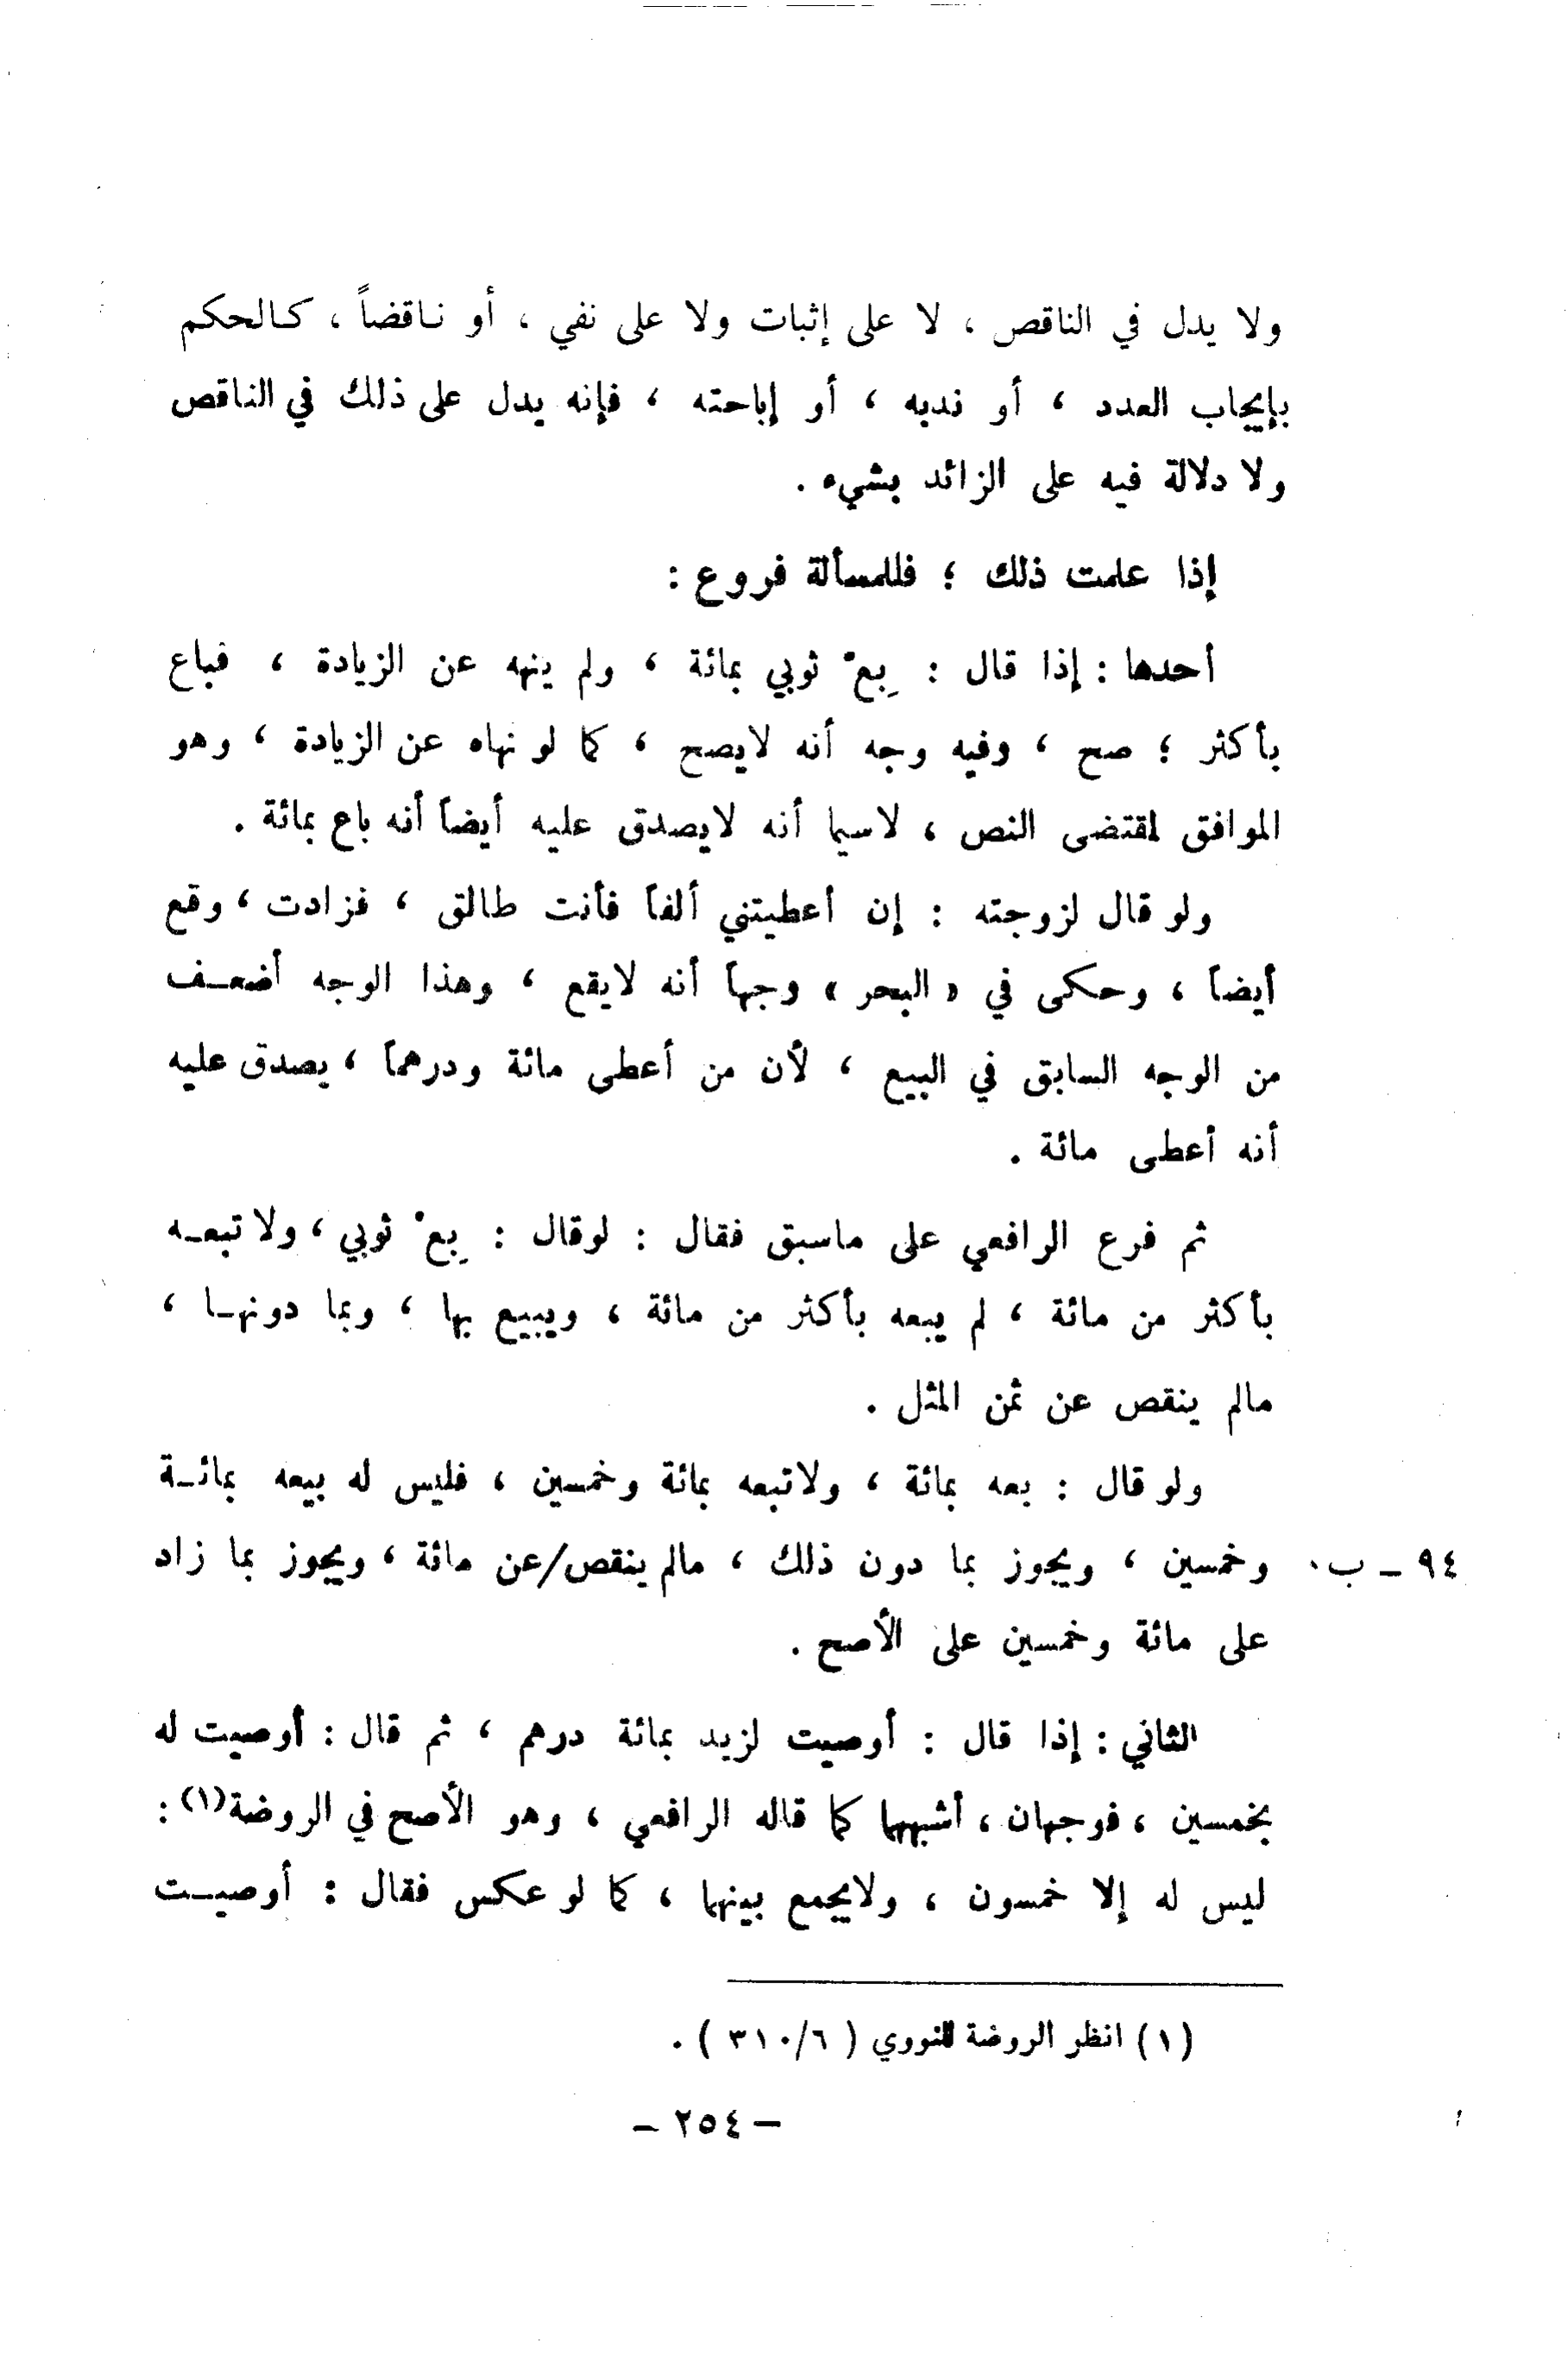 ولا يدل في الناقص ، لا على إثبات ولا على نفي ، أو ناقضاً ، كالحكم
بإيجاب العدد ، أو ندبه ، أو إباحته ، فإنه يدل على ذلك في الناقص
ولا دلالة فيه على الزائد بشيء .
إذا علمت ذلك ؛ فللمسألة فروع :
أحدها : إذا قال : بِعْ ثوبي بمائة ، ولم ينهه عن الزيادة ، فباع
بأكثر ؛ صح ، وفيه وجه أنه لايصح ، كما لو نهاه عن الزيادة ، وهو
الموافق لمقتضى النص ، لاسيما أنه لايصدق عليه أيضاً أنه باع بمائة .
ولو قال لزوجته : إن أعطيتني ألفاً فأنت طالق ، فزادت ، وقع
أيضاً ، وحكى في « البحر » وجهاً أنه لايقع ، وهذا الوجه أضعف
من الوجه السابق في البيع ، لأن من أعطى مائة ودرهماً ، يصدق عليه
أنه أعطى مائة .
ثم فرع الرافعي على ماسبق فقال : لوقال : بِعْ ثوبي ، ولا تبعه
بأكثر من مائة ، لم يبعه بأكثر من مائة ، ويبيع بها ، وبما دونها ،
مالم ينقص عن ثمن المثل .
ولو قال : بعه بمائة ، ولاتبعه بمائة وخمسين ، فليس له بيعه بمائة
٩٤ - ب . وخمسين ، ويجوز بما دون ذلك ، مالم ينقص/عن مائة ، ويجوز بما زاد
على مائة وخمسين على الأصح .
الثاني : إذا قال : أوصيت لزيد بمائة درهم ، ثم قال : أوصيت له
بخمسين ، فوجهان ، أشبهها كما قاله الرافعي ، وهو الأصح في الروضة(١) :
ليس له إلا خمسون ، ولايجمع بينهما ، كما لو عكس فقال : أوصيت
(١) انظر الروضة للنووي ( ٣١٠/٦ ) .
- ٢٥٤ -